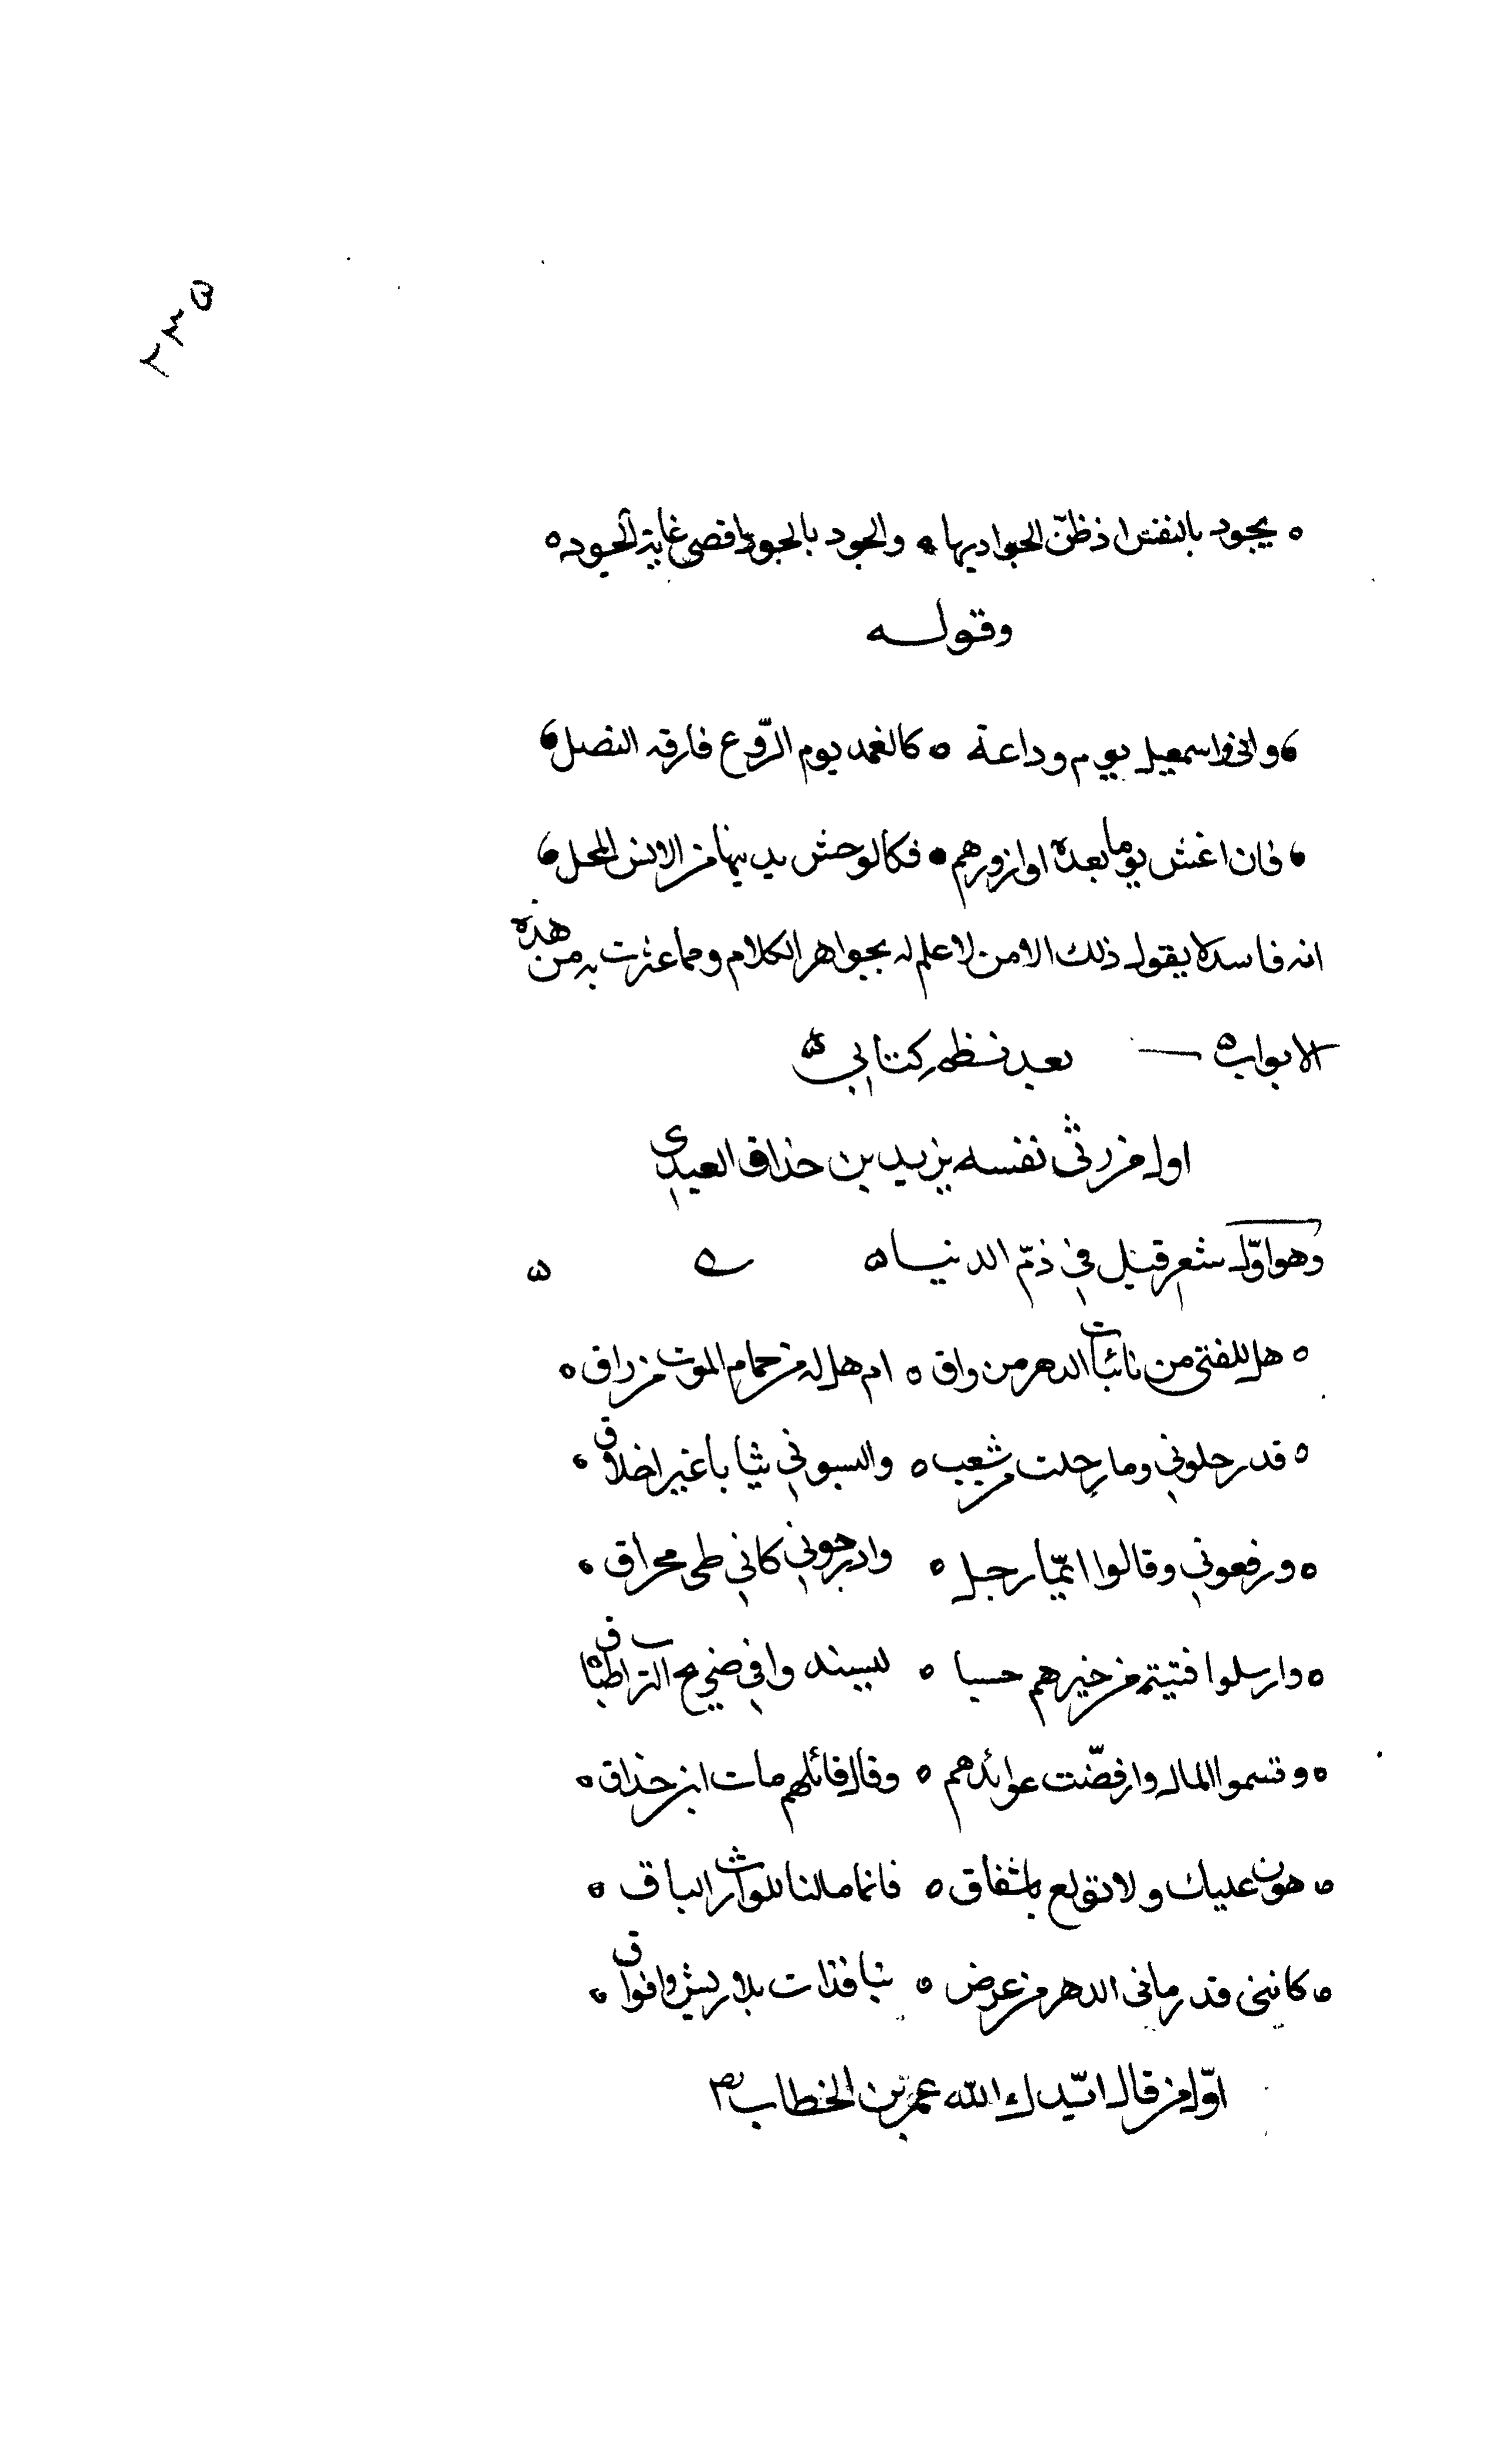 ٢٣٥
ه يجود بالنفس اذ ظنّ الجواد بها ه والجود بالجود اقصى غاية الجود ه
وقوله
واني واسمعيل يوم وداعة ه كالغمد يوم الرّوع فارقه النصل
فان اغش يوما بعده او ازورهم ه فكالوحش يدنيها من الانس المحل
انه فاسد لا يقول ذلك الا من لا علم له بجواهر الكلام ومما عثرت به من هذه
الابواب ه بعد نظم كتابي ه
اول من رثى نفسه يزيد بن خذاق العبدي
وهو اوّل شعر قيل في ذمّ الدنيا ه ه
ه هل للفتى من نائبات الدهر من واق ه ام هل له من حمام الموت من راق ه
ه قد رجلوني وما رجلت من شعب ه والبسوني ثيابا غير اخلاق ه
ه ورفعوني وقالوا ايّما رجل ه وادرجوني كاني طي مخراق ه
ه وارسلوا فتية من خيرهم حسبا ه ليسندوا في ضريح الترب اطباق
ه وقسموا المال وارفضّت عوائدهم ه وقال قائلهم مات ابن خذاق ه
ه هون عليك ولا تولع باشفاق ه فانما مالنا للوارث الباق ه
ه كانني قد رماني الدهر من عرض ه بنافذات بلا ريش وافواق ه
اوّل من قال ايّدك الله عمر بن الخطاب رضه